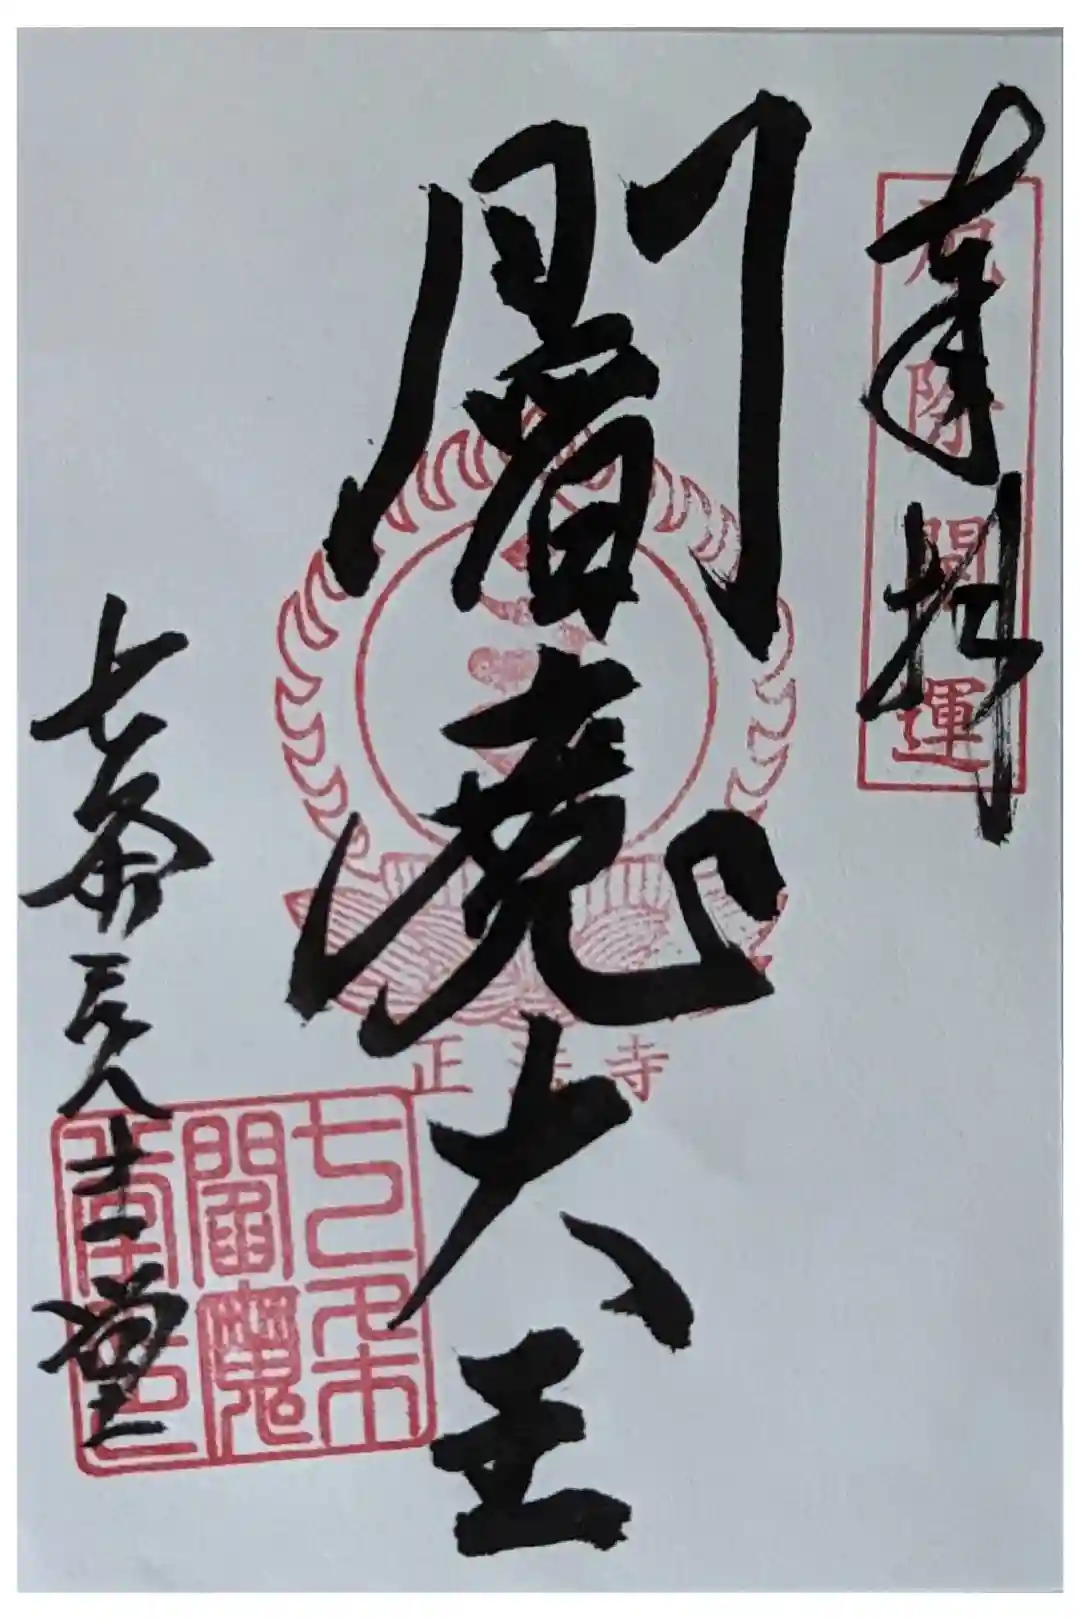 奉拝
厄除開運
閻魔大王
正 寺
七条 堂
七条
閻魔
堂印